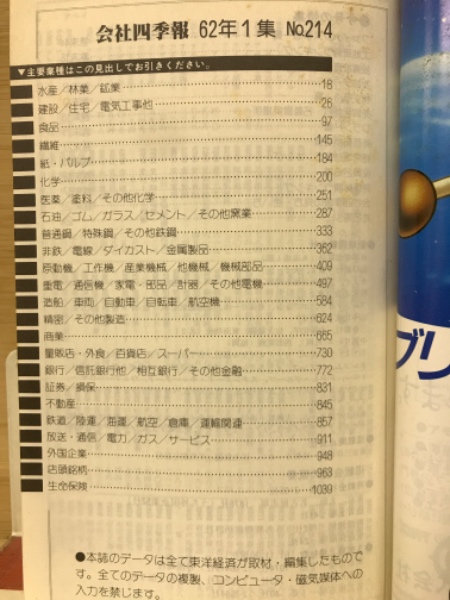 会社四季報 62年1集 No.214
▼主要業種はこの見出しでお引きください。
水産/林業/鉱業 18
建設/住宅/電気工事他 26
食品 97
繊維 145
紙・パルプ 184
化学 200
医薬/塗料/その他化学 251
石油/ゴム/ガラス/セメント/その他窯業 287
普通鋼/特殊鋼/その他鉄鋼 333
非鉄/電線/ダイカスト/金属製品 362
原動機/工作機/産業機械/他機械/機械部品 409
重電/通信機/家電・部品/計器/その他電機 497
造船/車両/自動車/自転車/航空機 584
精密/その他製造 624
商業 665
量販店・外食/百貨店/スーパー 730
銀行/信託銀行他/相互銀行/その他金融 772
証券/損保 831
不動産 845
鉄道/陸運/海運/航空/倉庫/運輸関連 857
放送・通信/電力/ガス/サービス 911
外国企業 948
店頭銘柄 963
生命保険 1039
●本誌のデータは全て東洋経済が取材・編集したもので
す。全てのデータの複製、コンピュータ・磁気媒体への
入力を禁じます。
ブリ